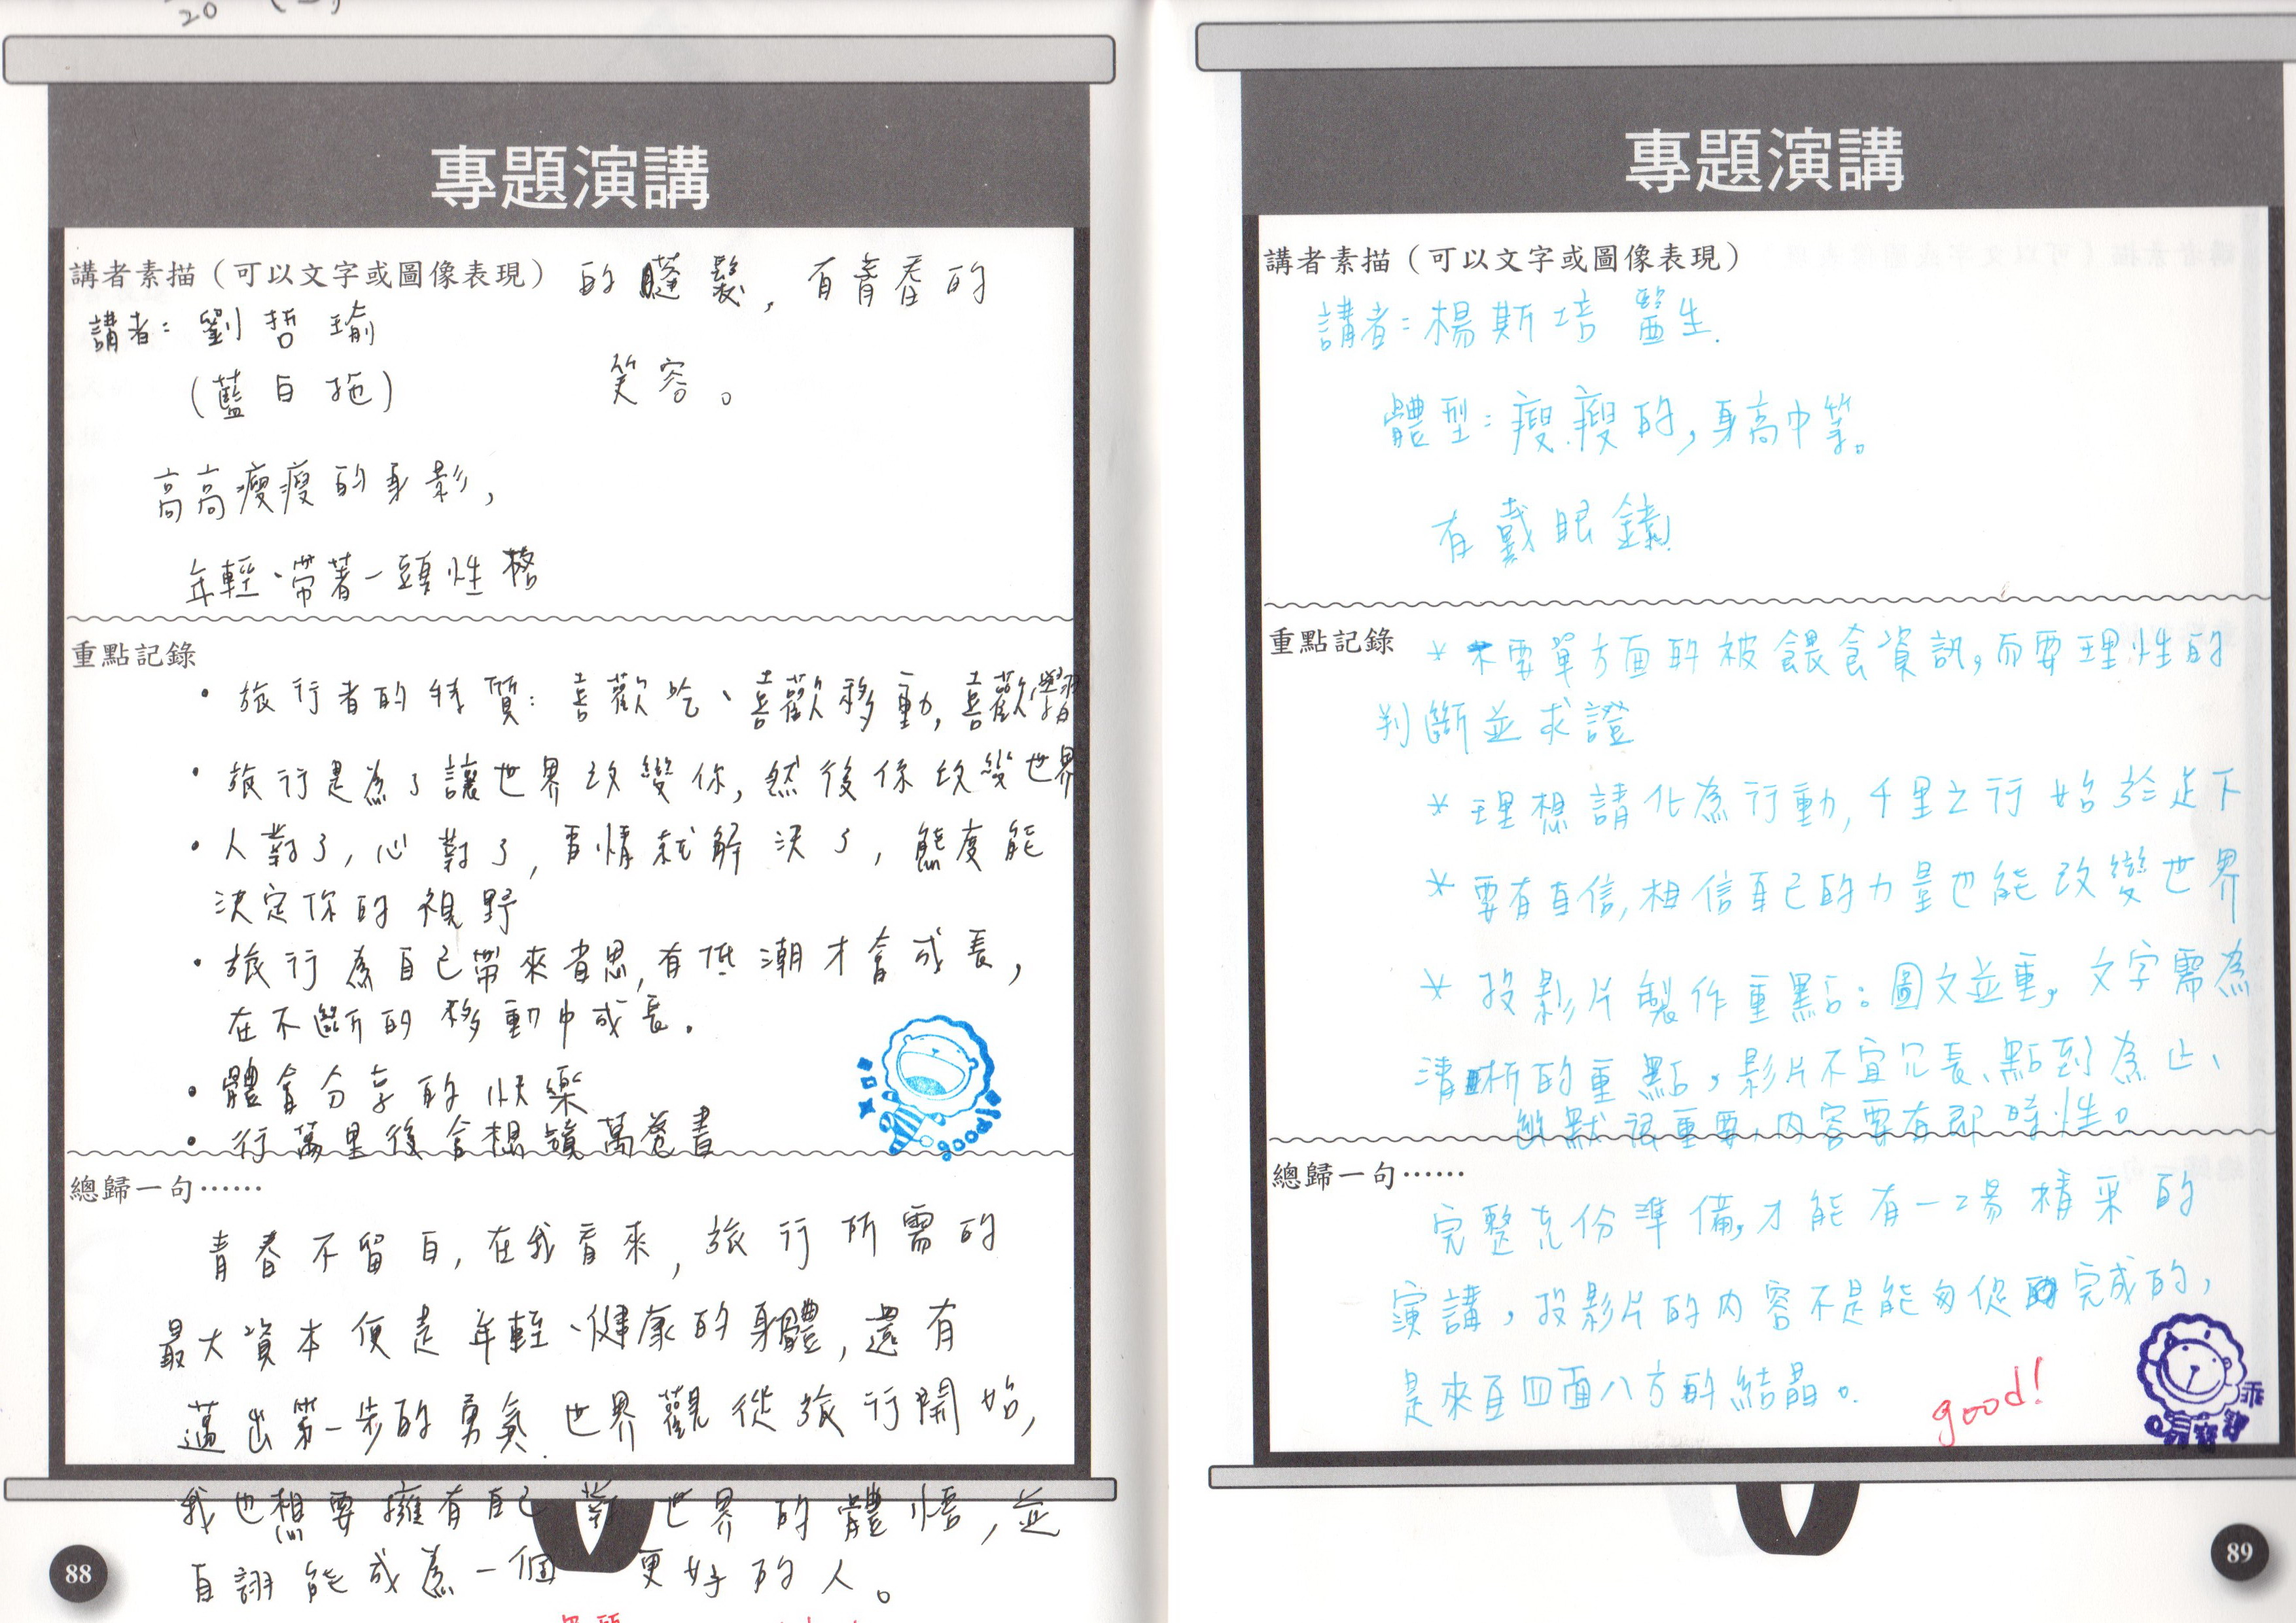 20
專題演講
講者素描（可以文字或圖像表現） 的膨髮，有青春的
講者：劉哲瑜
（藍白拖） 笑容。
高高瘦瘦的身影，
年輕、帶著一頭性格
重點記錄
・旅行者的特質：喜歡吃、喜歡移動，喜歡學習
・旅行是為了讓世界改變你，然後你改變世界
・人對了，心對了，事情就解決了，態度能
決定你的視野
・旅行為自己帶來省思，有低潮才會成長，
在不斷的移動中成長。
・體會分享的快樂
・行萬里後會想讀萬卷書
good
總歸一句……
青春不留白，在我看來，旅行所需的
最大資本便是年輕、健康的身體，還有
邁出第一步的勇氣．世界觀從旅行開始，
我也想要擁有自己對世界的體悟，並
自詡能成為一個更好的人。
88
專題演講
講者素描（可以文字或圖像表現）
講者：楊斯培 醫生．
體型：瘦瘦的，身高中等。
有戴眼鏡
重點記錄 * 不要單方面的被餵食資訊，而要理性的
判斷並求證
* 理想請化為行動，千里之行始於足下
* 要有自信，相信自己的力量也能改變世界
* 投影片製作重點：圖文並重，文字需為
清晰的重點，影片不宜冗長、點到為止、
幽默很重要，內容要有即時性。
總歸一句……
完整充份準備，才能有一場精采的
演講，投影片的內容不是能匆促完成的，
是來自四面八方的結晶。
good!
乖
89